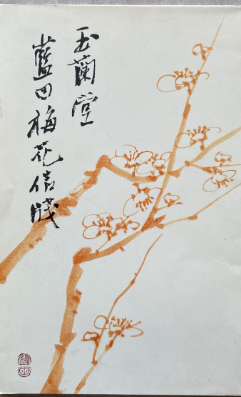 玉蘭堂
藍田梅花信牋